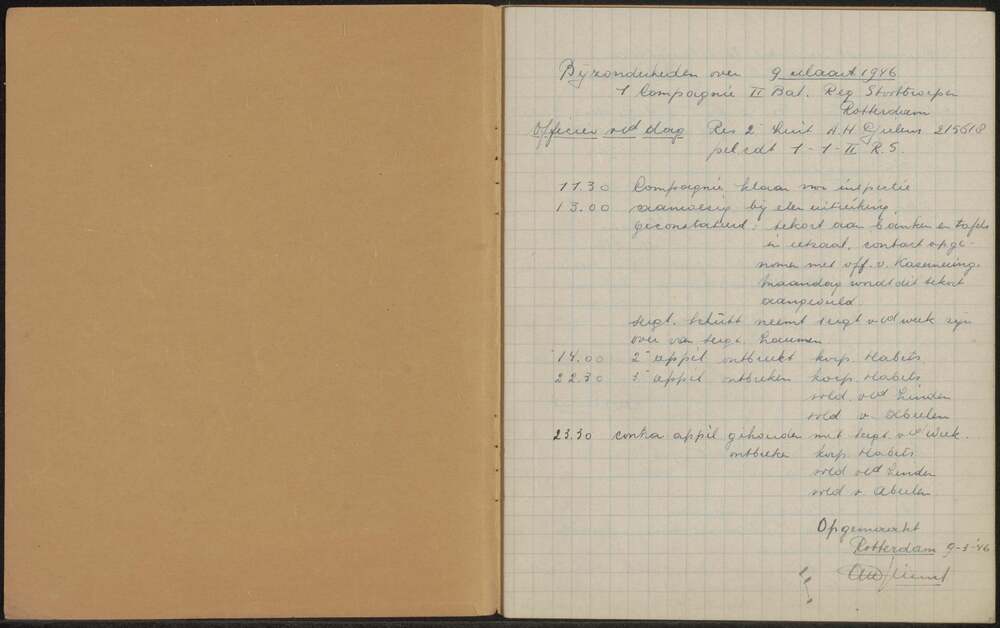 Bijzonderheden over 9 Maart 1946
1 Compagnie II Bat. Reg Stoottroepen
Rotterdam
Officier v/d dag Res 2e Luit A.H. 215618
pel cdt 1-1-II R.S.
11.30 Compagnie klaar voor inspectie
13.00 aanwezig bij eten uitreiking.
geconstateerd: tekort aan banken en tafels
in eetzaal, contact opge-
nomen met off. v. Kasernering.
Maandag wordt dit tekort
aangevuld.
Sergt. Schutt neemt sergt v/d week zijn
over van sergt.
14.00 2e appèl ontbreekt korp. Habets
22.30 3e appèl ontbreken korp. Habets
sold. v/d Linden
sold v. Abeelen
23.30 contra appèl gehouden met sergt. v/d week.
ontbreken korp Habets
sold v/d Linden
sold v. Abeelen.
Opgemaakt
Rotterdam 9-3-'46